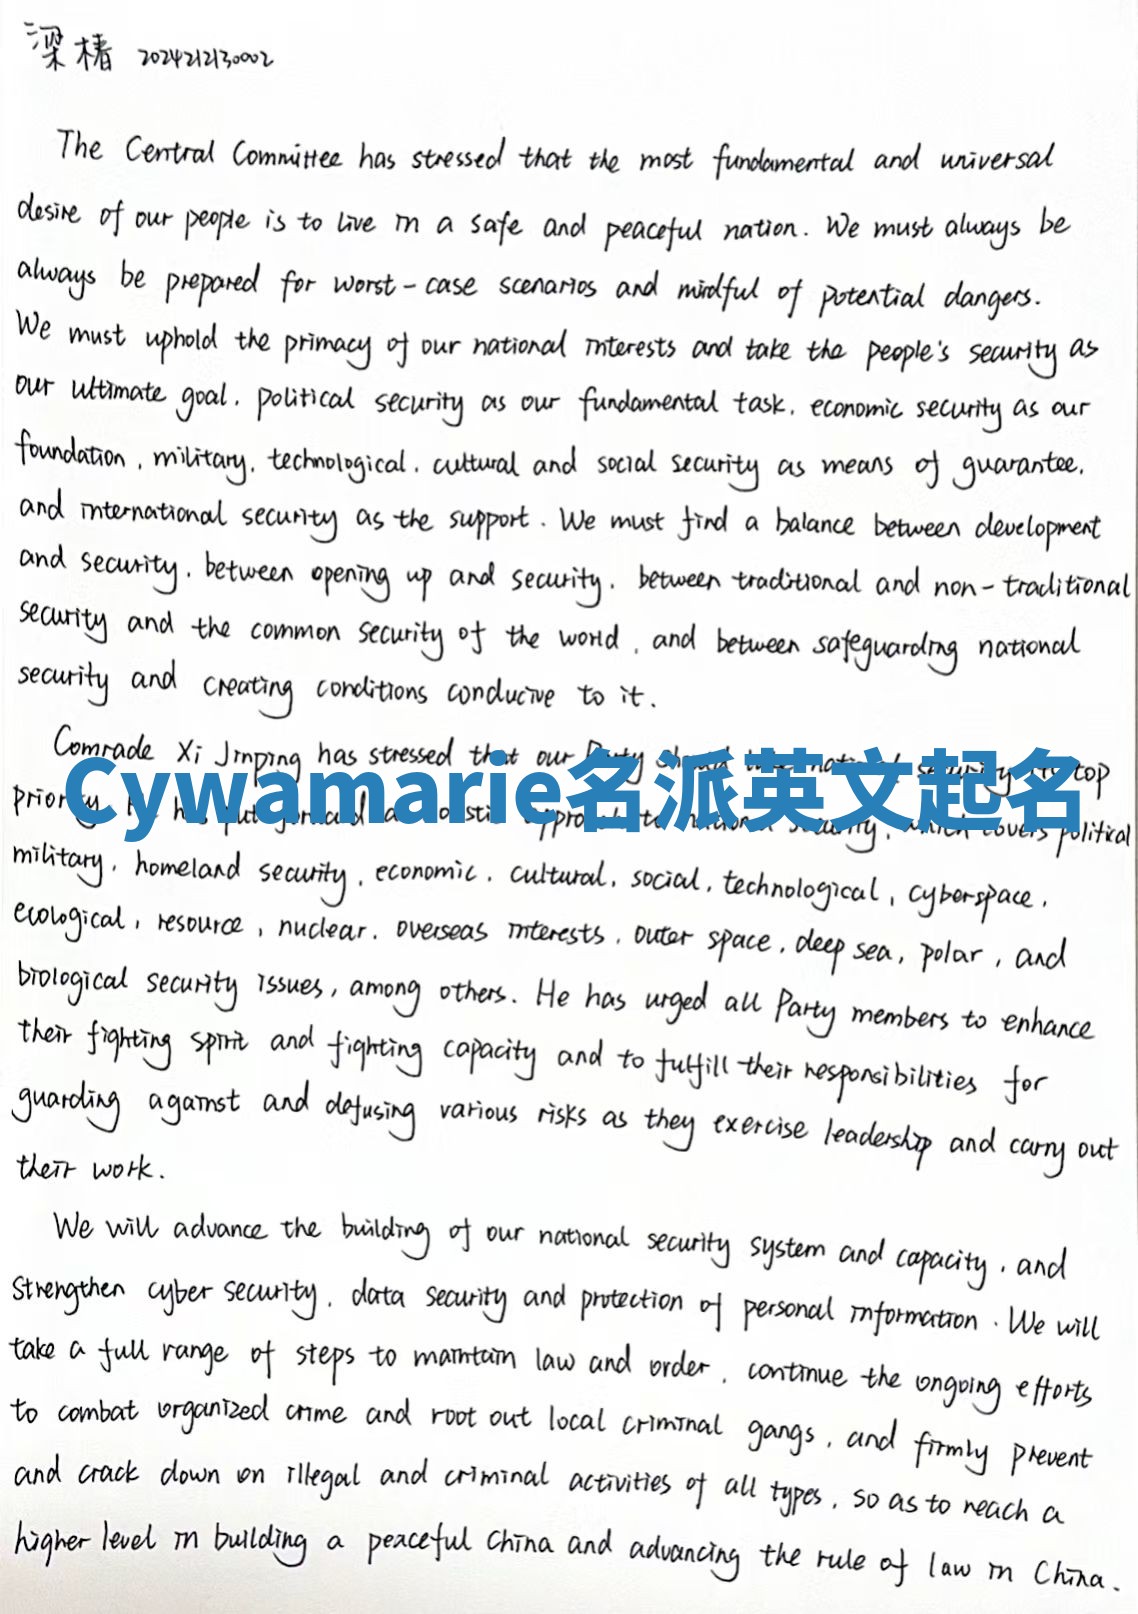 梁椿 2024212130002
The Central Committee has stressed that the most fundamental and universal
desire of our people is to live in a safe and peaceful nation. We must always be
always be prepared for worst-case scenarios and mindful of potential dangers.
We must uphold the primacy of our national interests and take the people's security as
our ultimate goal, political security as our fundamental task, economic security as our
foundation, military, technological, cultural and social security as means of guarantee,
and international security as the support. We must find a balance between development
and security, between opening up and security, between traditional and non-traditional
security and the common security of the world, and between safeguarding national
security and creating conditions conducive to it.
Comrade Xi Jinping has stressed that our top
Cywamarie名派英文起名
political
military, homeland security, economic, cultural, social, technological, cyberspace,
ecological, resource, nuclear, overseas interests, outer space, deep sea, polar, and
biological security issues, among others. He has urged all Party members to enhance
their fighting spirit and fighting capacity and to fulfill their responsibilities for
guarding against and defusing various risks as they exercise leadership and carry out
their work.
We will advance the building of our national security system and capacity, and
strengthen cyber security, data security and protection of personal information. We will
take a full range of steps to maintain law and order, continue the ongoing efforts
to combat organized crime and root out local criminal gangs, and firmly prevent
and crack down on illegal and criminal activities of all types, so as to reach a
higher level in building a peaceful China and advancing the rule of law in China.